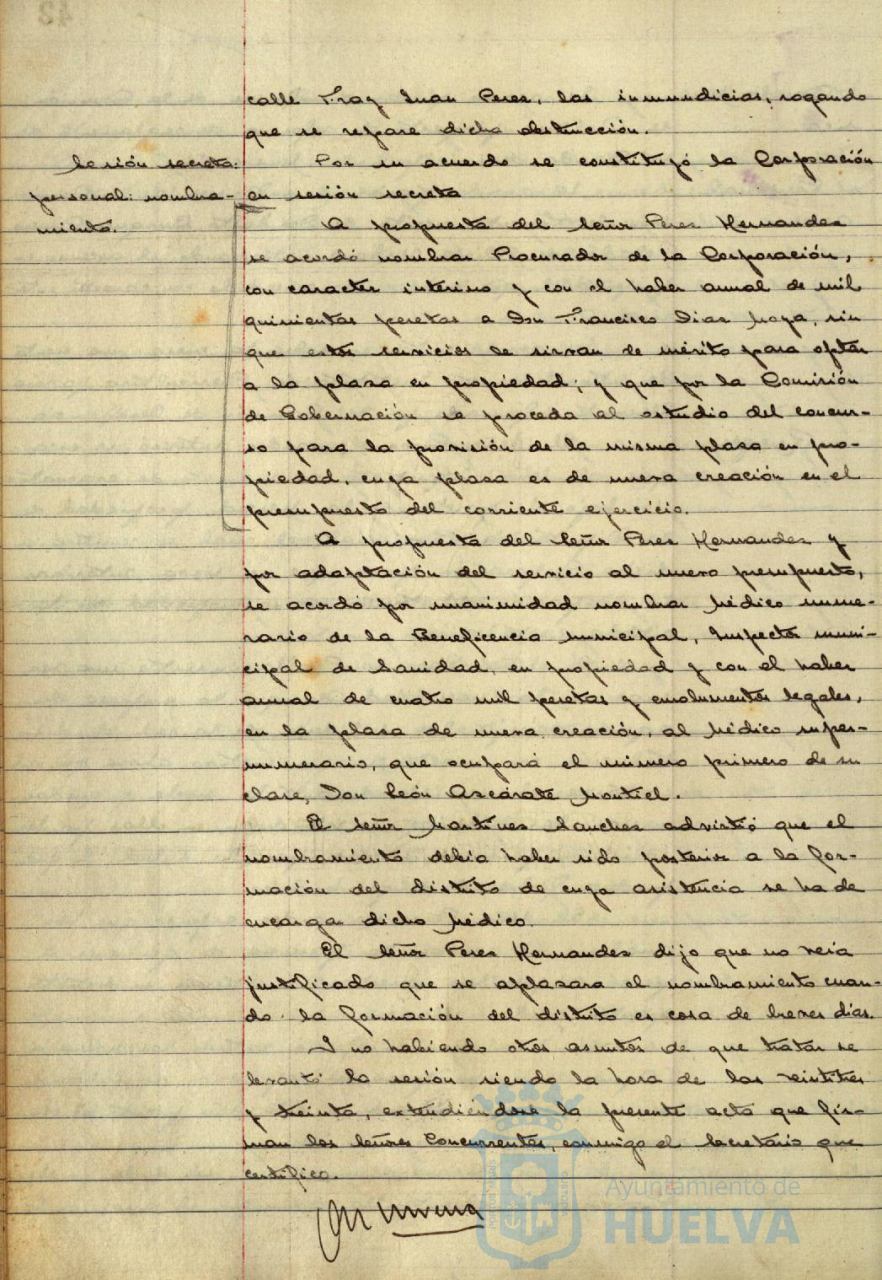 calle Fray Juan Perez, las inmundicias, rogando
que se repare dicha obstrucción.
Sesión secreta:
personal: nombra-
miento.
Por su acuerdo se constituyó la Corporación
en sesión secreta
A propuesta del Señor Perez Hernandez
se acordó nombrar Procurador de la Corporación,
con caracter interino y con el haber anual de mil
quinientas pesetas a Don Francisco Diaz Moya, sin
que estos servicios le sirvan de mérito para optar
a la plaza en propiedad; y que por la Comisión
de Gobernación se proceda al estudio del concur-
so para la provisión de la misma plaza en pro-
piedad, cuya plaza es de nueva creación en el
presupuesto del corriente ejercicio.
A propuesta del Señor Perez Hernandez y
por adaptación del servicio al nuevo presupuesto,
se acordó por unanimidad nombrar Médico nume-
rario de la Beneficencia Municipal, Inspector muni-
cipal de Sanidad, en propiedad y con el haber
anual de cuatro mil pesetas y emolumentos legales,
en la plaza de nueva creación, al Médico super-
numerario, que ocupará el número primero de su
clase, Don León Azcárate Montiel.
El Señor Martinez Sanchez advirtió que el
nombramiento debia haber sido posterior a la for-
mación del distrito de cuya asistencia se ha de
encarga dicho Médico.
El Señor Perez Hernandez dijo que no veia
justificado que se aplazara el nombramiento cuan-
do la formación del distrito es cosa de breves dias.
Y no habiendo otros asuntos de que tratar se
levantó la sesión siendo la hora de las veintitres
y treinta, extendiéndose la presente acta que fir-
man los Señores Concurrentes, conmigo el Secretario que
certifico.
Ayuntamiento de
HUELVA